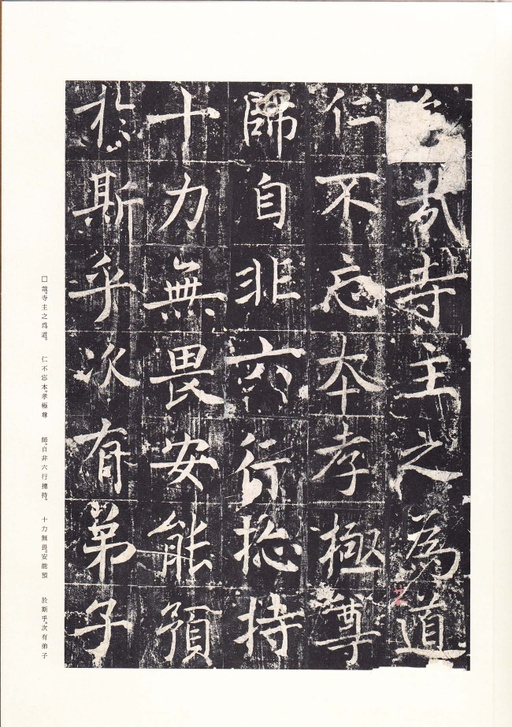 哉寺主之為道
仁不忘本孝極尊
師自非六行揔持
十力無畏安能預
於斯乎次有弟子
□哉、寺主之爲道、　仁不忘本、孝極尊　師、自非六行揔持、　十力無畏、安能預　於斯乎、次有弟子